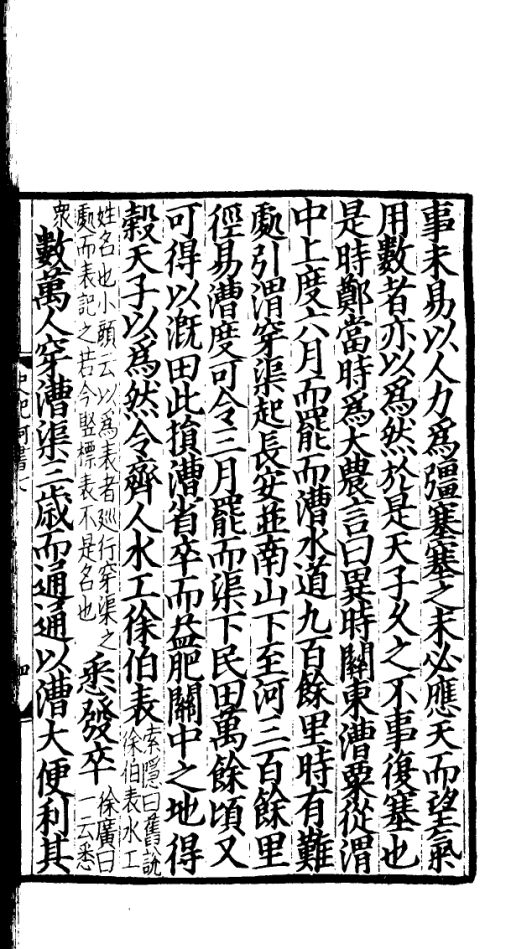 事未易以人力爲彊塞塞之未必應天而望氣
用數者亦以爲然於是天子久之不事復塞也
是時鄭當時爲大農言曰異時關東漕粟從渭
中上度六月而罷而漕水道九百餘里時有難
處引渭穿渠起長安並南山下至河三百餘里
徑易漕度可令三月罷而渠下民田萬餘頃又
可得以漑田此損漕省卒而益肥關中之地得
穀天子以爲然令齊人水工徐伯表
索隱曰舊說
徐伯表水工
姓名也小顔云以爲表者廵行穿渠之
處而表記之若今竪標表不是名也
悉發卒
徐廣曰
一云悉
衆
數萬人穿漕渠三歲而通通以漕大便利其